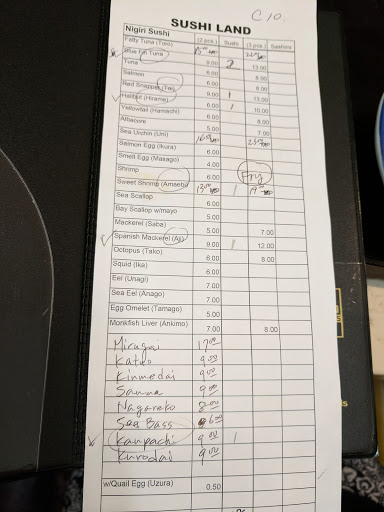 C 10.
SUSHI LAND
Nigiri Sushi (2 pcs.) Sushi (3 pcs.) Sashimi
Fatty Tuna (Toro)
Blue Fin Tuna
Tuna 9.00 2 13.00
Salmon 6.00 8.00
Red Snapper (Tai) 6.00 8.00
Halibut (Hirame) 9.00 1 13.00
Yellowtail (Hamachi) 6.00 1 10.00
Albacore 6.00 8.00
Sea Urchin (Uni) 5.00 7.00
Salmon Egg (Ikura) 6.00
Smelt Egg (Masago) 4.00
Shrimp 6.00 Fry
Sweet Shrimp (Amaebi) 13.00 1 19.00
Sea Scallop 6.00
Bay Scallop w/mayo 5.00
Mackerel (Saba) 5.00 7.00
Spanish Mackerel (Aji) 9.00 1 12.00
Octopus (Tako) 6.00 8.00
Squid (Ika) 6.00
Eel (Unagi) 7.00
Sea Eel (Anago) 7.00
Egg Omelet (Tamago) 5.00
Monkfish Liver (Ankimo) 7.00 8.00
Mirugai 17.00
Katuo 9.00
Kinmedai 9.00
Sanma 9.00
Nagareko 8.00
Sea Bass 6.00
Kanpachi 9.00 1
Kurodai 9.00
w/Quail Egg (Uzura) 0.50